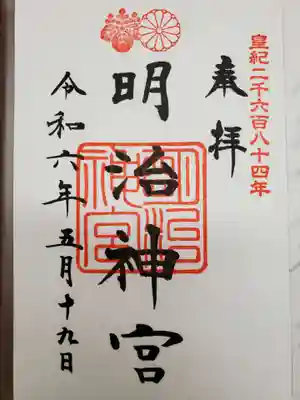 皇紀二千六百八十四年
奉拝
明治神宮
明治神宮
令和六年五月十九日